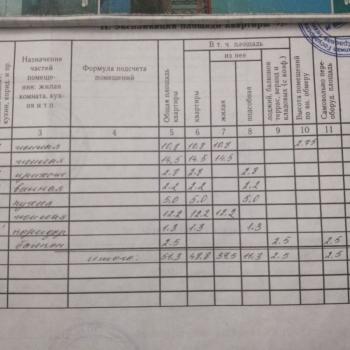 II. Экспликация площади квартиры
кухни, корид. и пр.
Назначение частей помеще-ния: жилая комната, кух-ня и т.п.
Формула подсчета помещений
Общая площадь квартиры
В т. ч. площадь
из нее
квартиры
жилая
подсобная
лоджий, балконов террас, веранд и кладовых (с коэф.)
Высота помещений по вн. обмеру
Самовольно пере-оборуд. площадь
3 4 5 6 7 8 9 10 11
жилая 10.8 10.8 10.8 2.75
жилая 14.5 14.5 14.5
прихожая 2.8 2.8 2.8
ванная 2.2 2.2 2.2
кухня 5.0 5.0 5.0
жилая 12.2 12.2 12.2
коридор 1.3 1.3 1.3
балкон 2.5 2.5 2.5
итого: 51.3 48.8 37.5 11.3 2.5 2.5